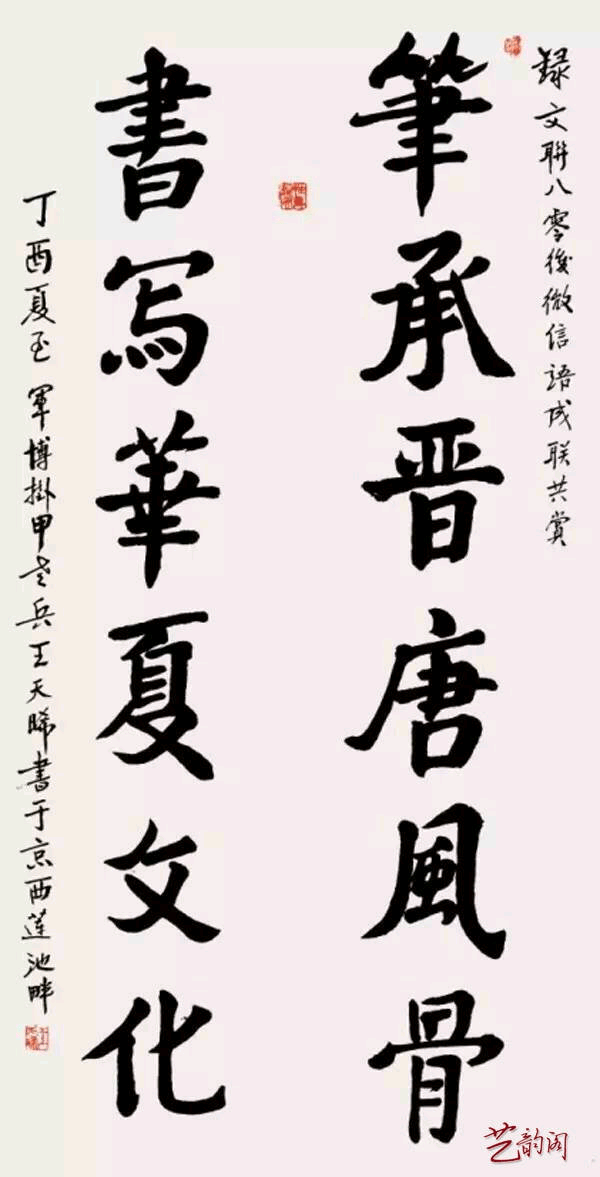 録文聯八零後微信語成联共赏
筆承晋唐風骨
書写華夏文化
丁酉夏至軍博掛甲老兵王天晞書于京西蓮池畔
艺韵阁